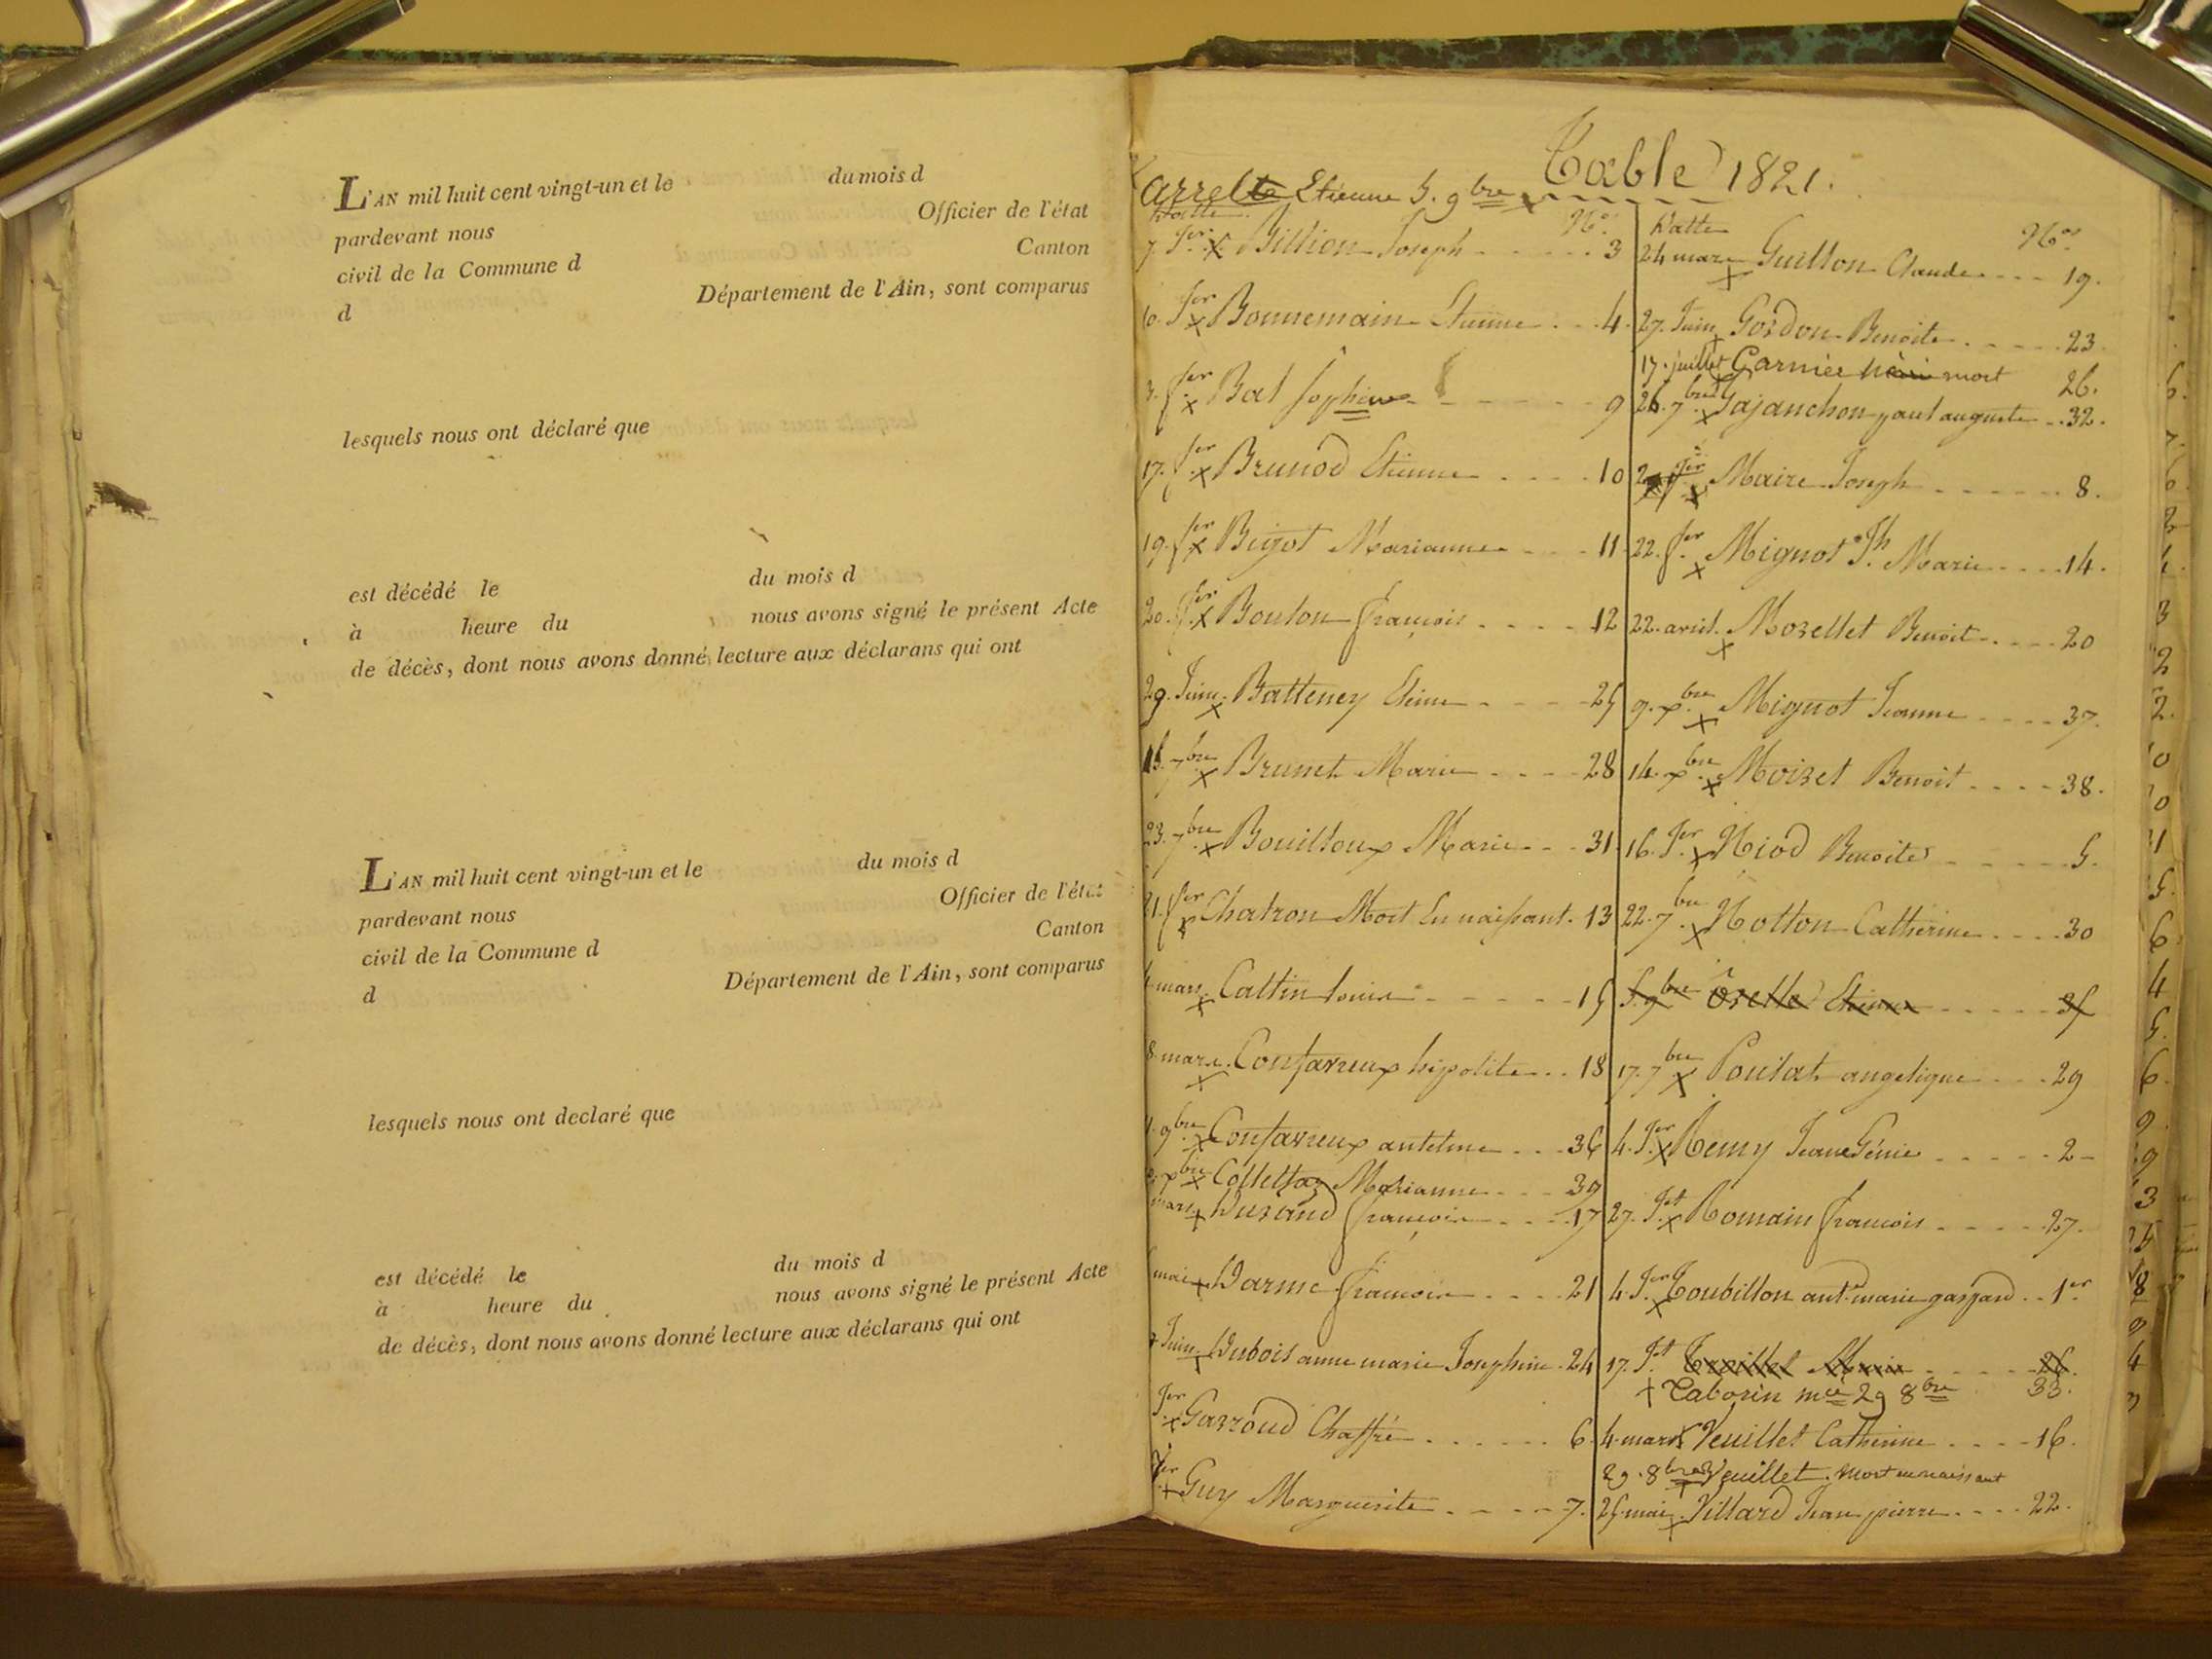 L'AN mil huit cent vingt-un et le du mois d
pardevant nous Officier de l'état
civil de la Commune d Canton
d Département de l'Ain, sont comparus
lesquels nous ont déclaré que
est décédé le du mois d
à heure du nous avons signé le présent Acte
de décès, dont nous avons donné lecture aux déclarans qui ont
L'AN mil huit cent vingt-un et le du mois d
pardevant nous Officier de l'état
civil de la Commune d Canton
d Département de l'Ain, sont comparus
lesquels nous ont declaré que
est décédé le du mois d
à heure du nous avons signé le présent Acte
de décès, dont nous avons donné lecture aux déclarans qui ont
Table 1821.
Etienne 5. 9bre
Nos
7. Jer Billion Joseph 3
10. Jer Bonnemain Etienne 4.
3. fer Bal 9
17. fer Brunod Etienne 10
19. fer Bigot Marianne 11
20. fer Bouton françois 12
29. Juin. Batteney Etienne 25
15. 7bre Brunet Marie 28
23. 7bre Bouilloux Marie 31
21. fer Chatron Mort En naissant. 13
mars. Cattin Louis 15
8. mars. Confavreux hipolite 18
9bre Confavreux antelme 36
xbre Collettaz Marianne 39
mars Durand françois 17
mai Darme françois 21
Juin. Dubois anne marie Josephine. 24
Jer Garroud Chaffré 6.
Jer Guy Marguerite 7.
Datte Nos
24 mars Guillon Claude 19.
27. Juin Gordon Benoite 23.
17. juillet Garnier mort 26.
26. 7bre Gajanchon paul auguste 32.
Jer Maire Joseph 8.
22. fer Mignot Jh. Marie 14.
22. avril. Morellet Benoit 20
9. xbre Mignot Jeanne 37.
14. xbre Moiret Benoit 38.
16. Jer Niod Benoite 5.
22. 7bre Notton Catherine 30
5. 9bre orelle Etienne 35
17. 7bre Poulat angelique 29
4. Jer Remy Jeane 2
27. Jet Romain francois 27.
4. Jer Toubillon ant. marie gaspard 1er
17. Jet 26.
Taborin mie 29 8bre 33.
4. mars Veuillet Catherine 16.
29. 8bre Veuillet. mort en naissant
25. mai. Villard Jean pierre 22.